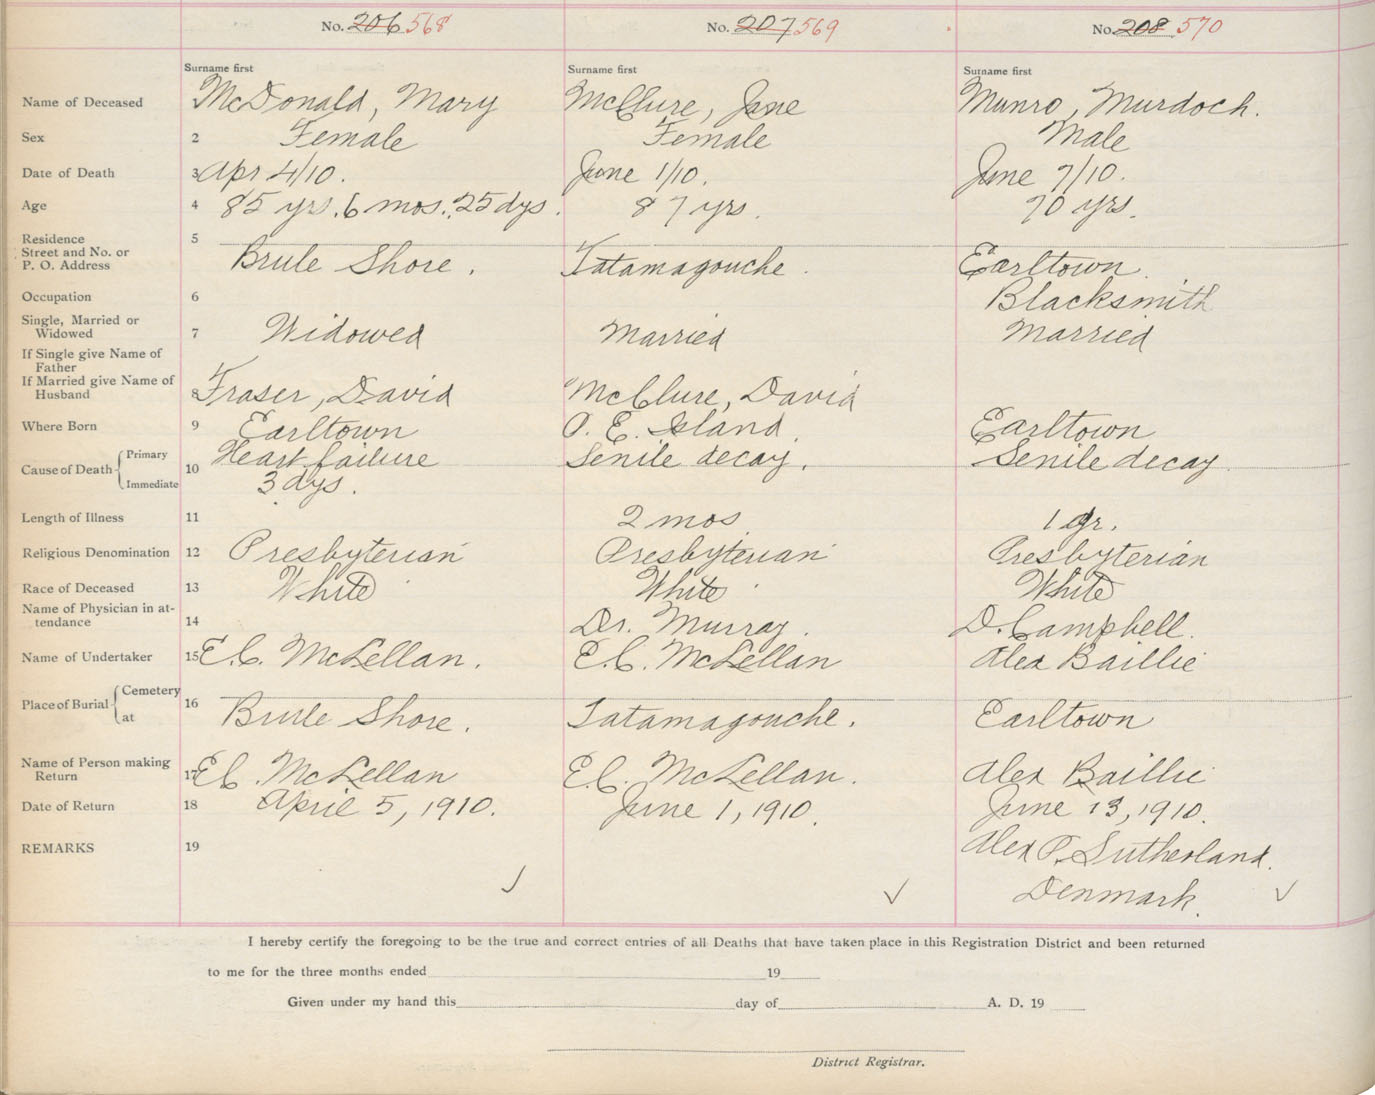 No. 206 568 No. 207 569 No. 208 570
Surname first Surname first Surname first
Name of Deceased McDonald, Mary McClure, Jane Munro, Murdoch.
Sex 2 Female Female Male
Date of Death 3 Apr 4/10. June 1/10. June 7/10.
Age 4 85 yrs. 6 mos. 25 dys. 87 yrs. 70 yrs.
Residence 5
Street and No. or
P. O. Address Brule Shore. Tatamagouche. Earltown.
Occupation 6 Blacksmith
Single, Married or
Widowed 7 Widowed Married Married
If Single give Name of
Father
If Married give Name of
Husband 8 Fraser, David McClure, David
Where Born 9 Earltown P. E. Island. Earltown
Cause of Death Primary 10 Heart failure Senile decay. Senile decay.
Immediate 3 dys.
Length of Illness 11 2 mos. 1 yr.
Religious Denomination 12 Presbyterian Presbyterian Presbyterian
Race of Deceased 13 White White White
Name of Physician in at-
tendance 14 Dr. Murray. D. Campbell.
Name of Undertaker 15 E.C. McLellan. E.C. McLellan Alex Baillie
Place of Burial Cemetery 16
at Brule Shore. Tatamagouche. Earltown
Name of Person making
Return 17 E.C. McLellan E.C. McLellan. Alex Baillie
Date of Return 18 April 5, 1910. June 1, 1910. June 13, 1910.
REMARKS 19 Alex P. Sutherland.
Denmark.
I hereby certify the foregoing to be the true and correct entries of all Deaths that have taken place in this Registration District and been returned
to me for the three months ended 19
Given under my hand this day of A. D. 19
District Registrar.